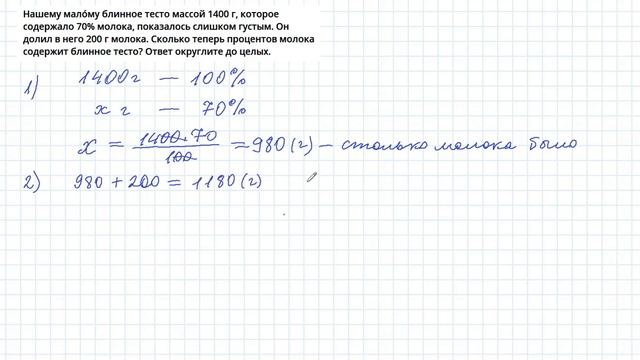 Нашему малóму блинное тесто массой 1400 г, которое
содержало 70% молока, показалось слишком густым. Он
долил в него 200 г молока. Сколько теперь процентов молока
содержит блинное тесто? Ответ округлите до целых.
1) 1400 г — 100%
x г — 70%
x = 1400·70 / 100 = 980 (г) – столько молока было
2) 980 + 200 = 1180 (г)